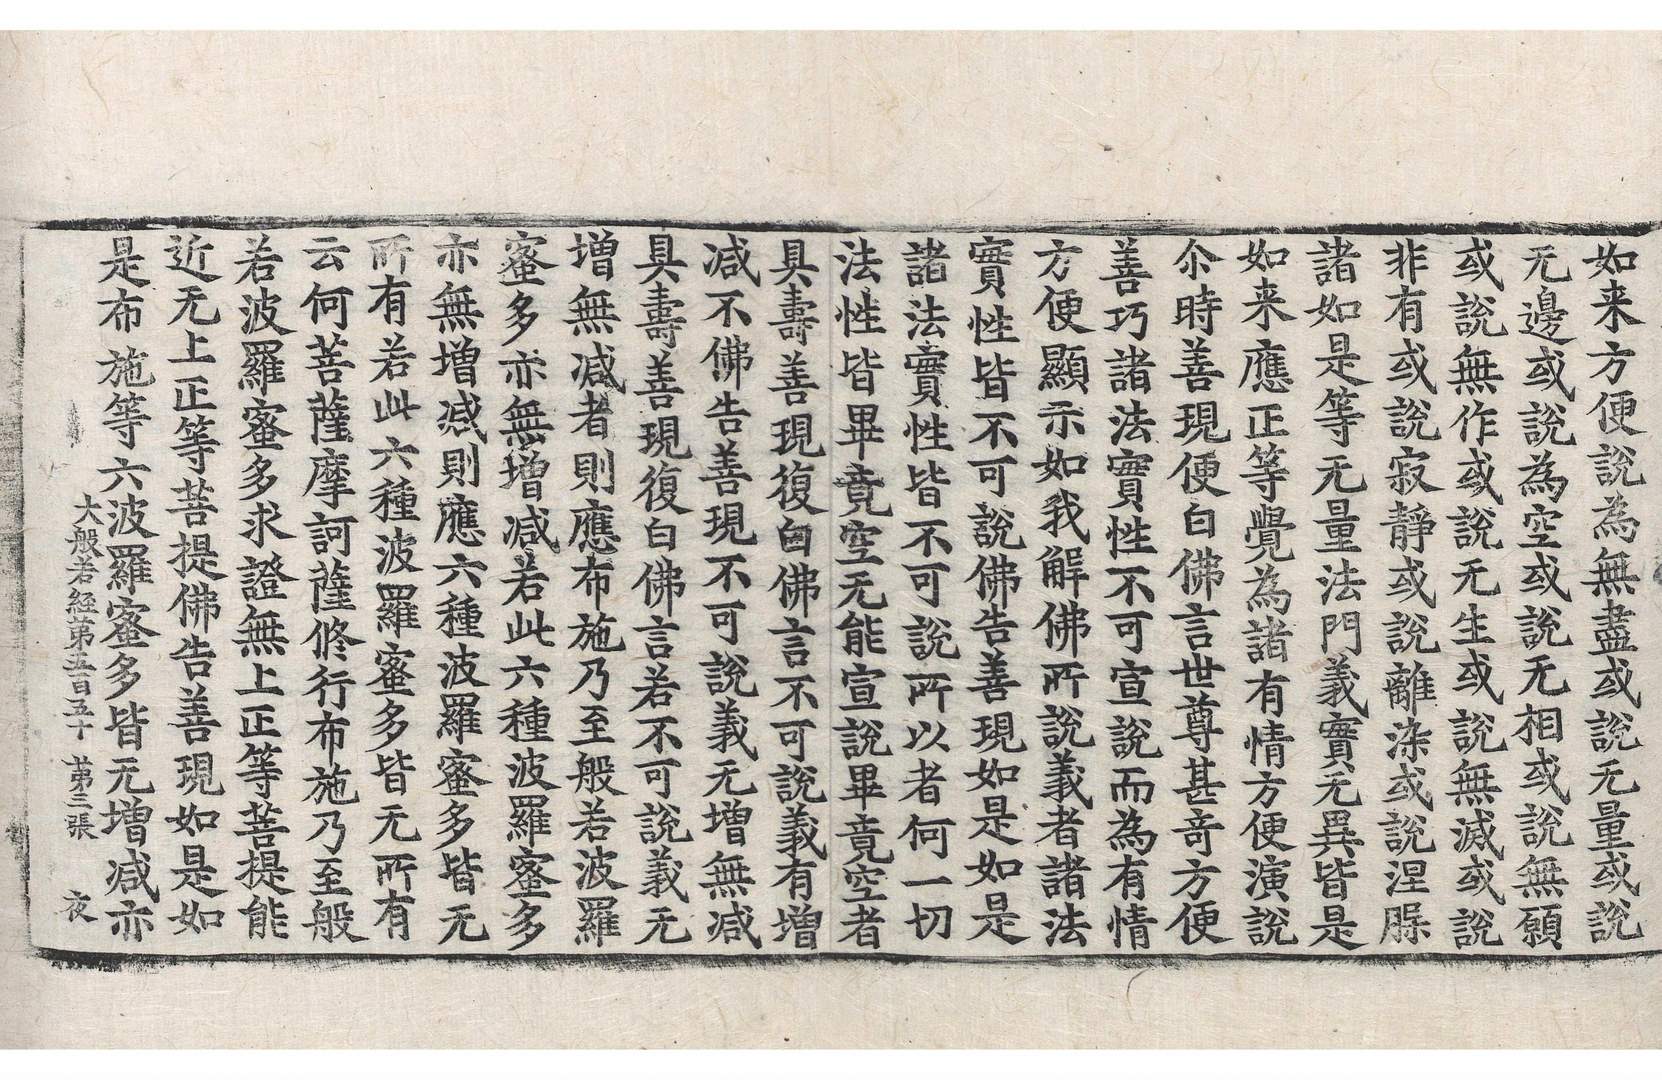 如来方便說為無盡或說无量或說
无邊或說為空或說无相或說無願
或說無作或說无生或說無滅或說
非有或說寂靜或說離染或說涅槃
諸如是等无量法門義實无異皆是
如来應正等覺為諸有情方便演說
尒時善現便白佛言世尊甚奇方便
善巧諸法實性不可宣說而為有情
方便顯示如我解佛所說義者諸法
實性皆不可說佛告善現如是如是
諸法實性皆不可說所以者何一切
法性皆畢竟空无能宣說畢竟空者
具壽善現復白佛言不可說義有增
減不佛告善現不可說義无增無減
具壽善現復白佛言若不可說義无
增無減者則應布施乃至般若波羅
蜜多亦無增減若此六種波羅蜜多
亦無增減則應六種波羅蜜多皆无
所有若此六種波羅蜜多皆无所有
云何菩薩摩訶薩修行布施乃至般
若波羅蜜多求證無上正等菩提能
近无上正等菩提佛告善現如是如
是布施等六波羅蜜多皆无增減亦
大般若經第五百五十 第三張 夜